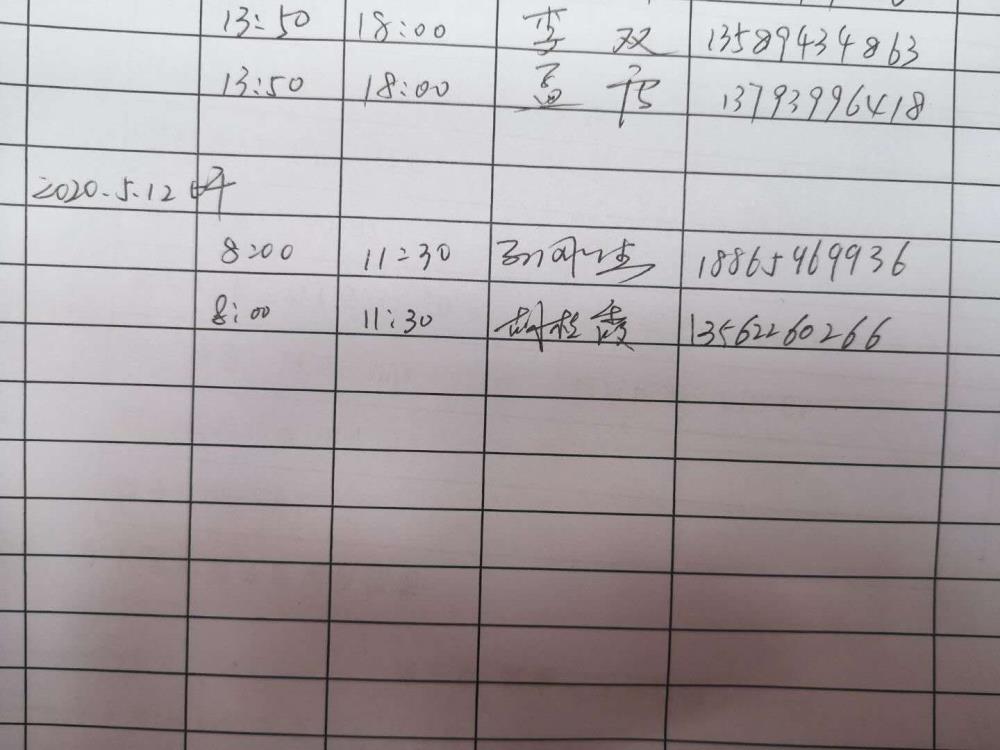 13:50 18:00 李 双 13589434863
13:50 18:00 13793996418
2020.5.12
8:00 11:30 18865469936
8:00 11:30 胡桂霞 13562260266